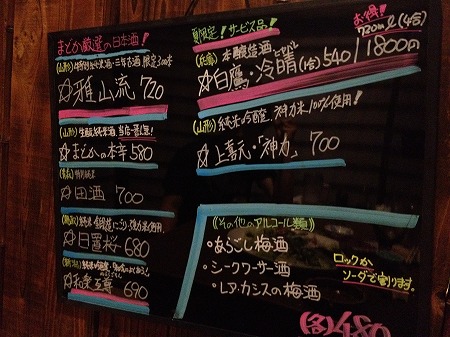 まどか厳選の日本酒!
(山形)
雅山流 720
(山形) 当店一番人気!
まどかの本辛 580
(青森) 特別純米
田酒 700
日置桜 680
和楽互尊 690
夏限定!サービス品!
お得!
(兵庫) 本醸造酒
720ml (4合)
白鷹・冷晴 (1合) 540/1800円
(山形) 純米吟醸、神力米100%使用!
上喜元・「神力」 700
《その他のアルコール類》
・あらごし梅酒
・シークワーサー酒
・レア・カシスの梅酒
ロックか
ソーダで割ります。
(各)480